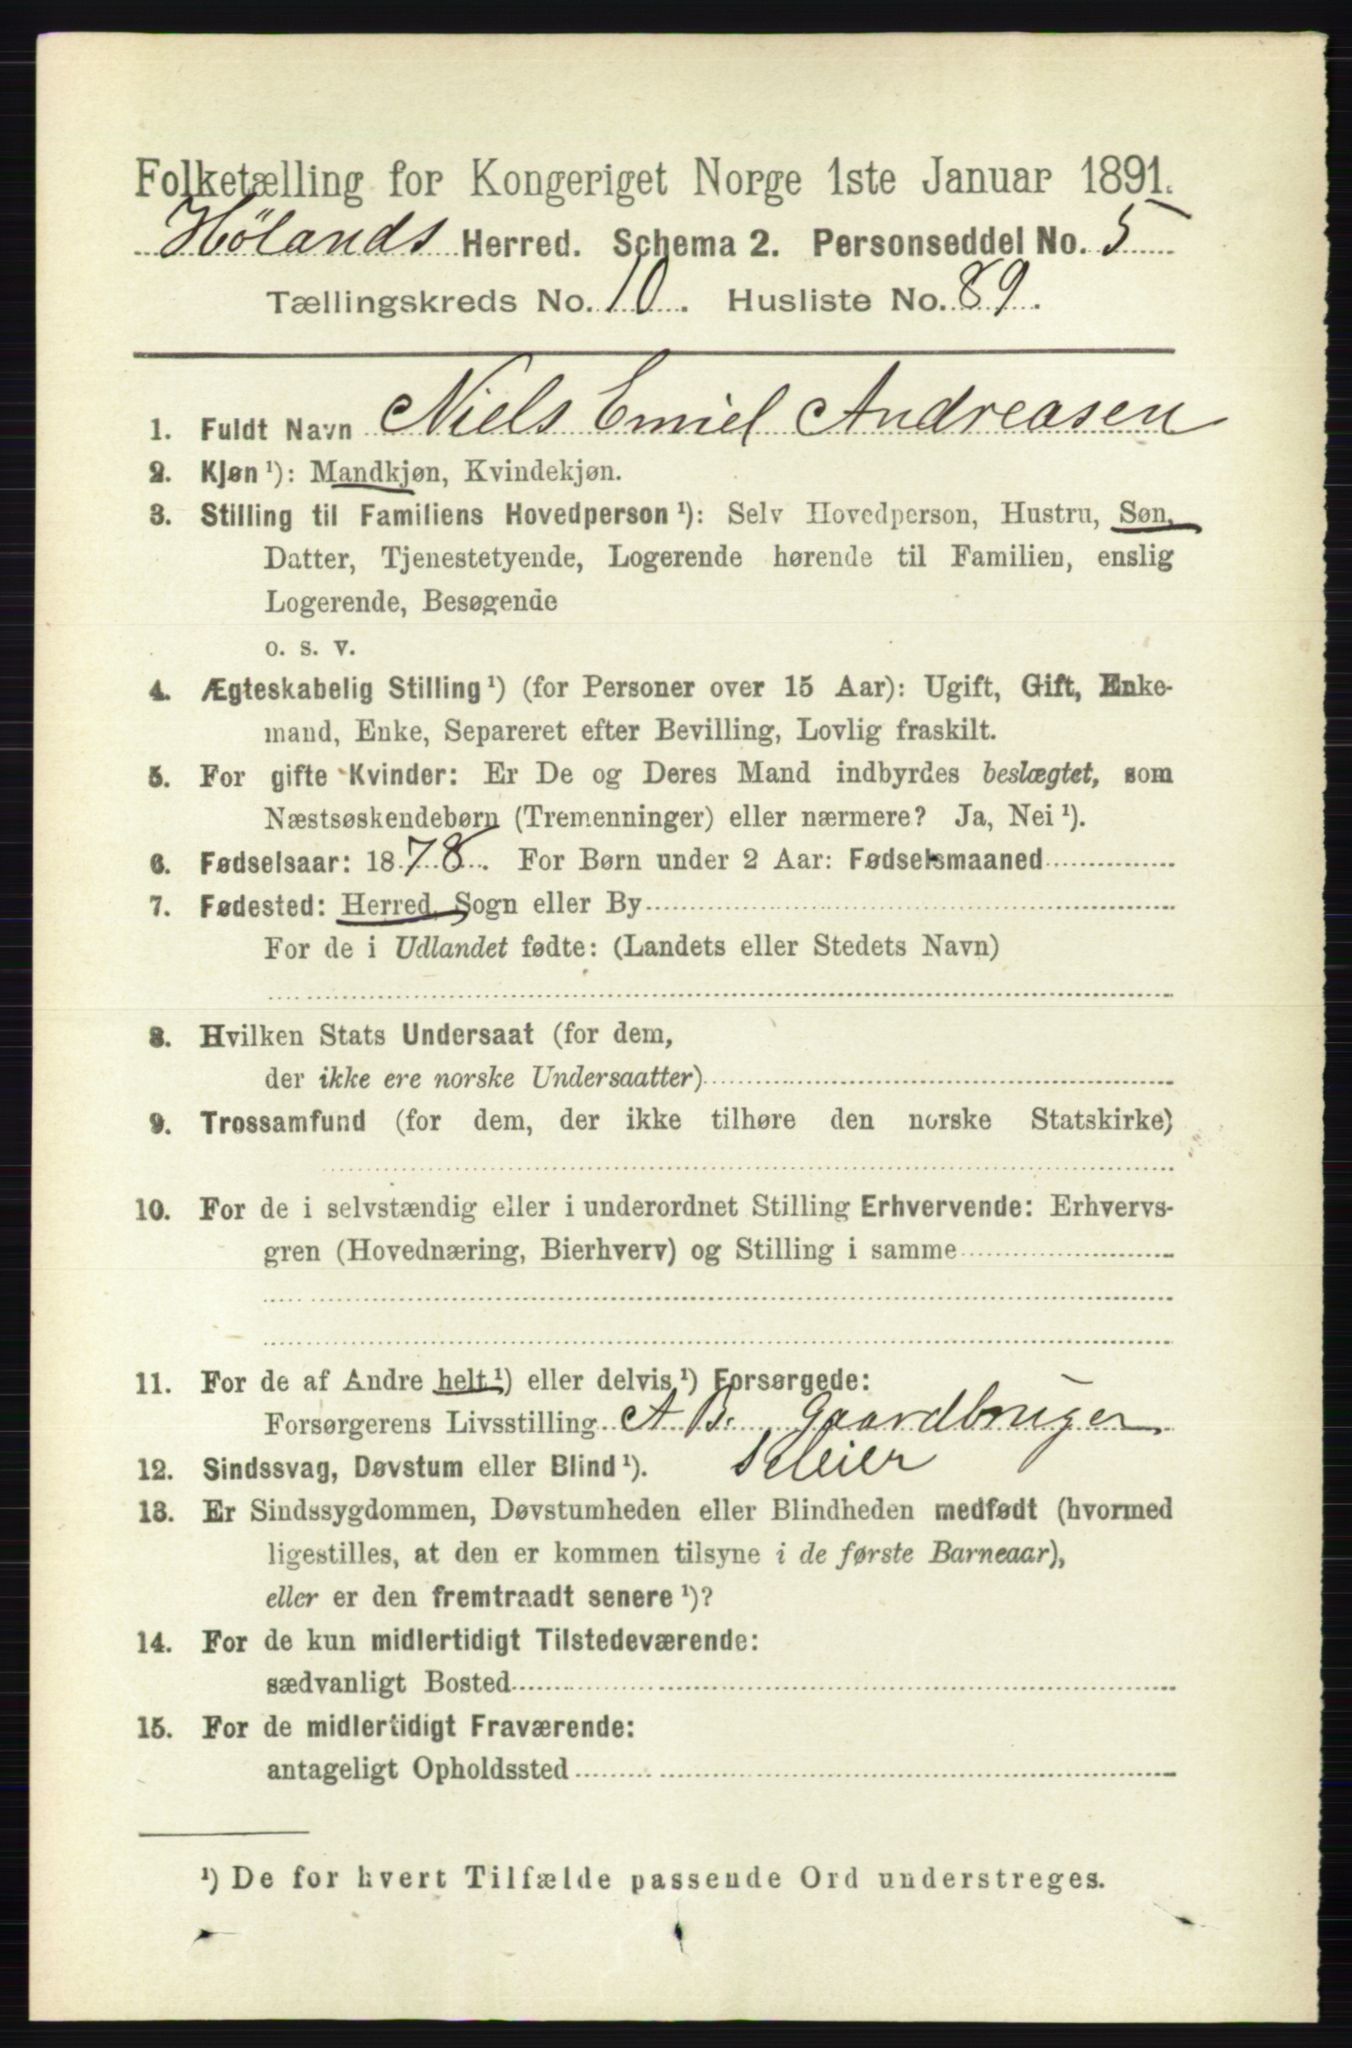 Folketælling for Kongeriget Norge 1ste Januar 1891.
Hølands Herred. Schema 2. Personseddel No. 5
Tællingskreds No. 10. Husliste No. 89.
1. Fuldt Navn Niels Emiel Andreasen
2. Kjøn ¹): Mandkjøn, Kvindekjøn.
3. Stilling til Familiens Hovedperson ¹): Selv Hovedperson, Hustru, Søn,
Datter, Tjenestetyende, Logerende hørende til Familien, enslig
Logerende, Besøgende
o. s. v.
4. Ægteskabelig Stilling ¹) (for Personer over 15 Aar): Ugift, Gift, Enke-
mand, Enke, Separeret efter Bevilling, Lovlig fraskilt.
5. For gifte Kvinder: Er De og Deres Mand indbyrdes beslægtet, som
Næstsøskendebørn (Tremenninger) eller nærmere? Ja, Nei ¹).
6. Fødselsaar: 1878. For Børn under 2 Aar: Fødselsmaaned
7. Fødested: Herred, Sogn eller By
For de i Udlandet fødte: (Landets eller Stedets Navn)
8. Hvilken Stats Undersaat (for dem,
der ikke ere norske Undersaatter)
9. Trossamfund (for dem, der ikke tilhøre den norske Statskirke)
10. For de i selvstændig eller i underordnet Stilling Erhvervende: Erhvervs-
gren (Hovednæring, Bierhverv) og Stilling i samme
11. For de af Andre helt ¹) eller delvis ¹) Forsørgede:
Forsørgerens Livsstilling A B. Gaardbruger
12. Sindssvag, Døvstum eller Blind ¹). Sleier
13. Er Sindssygdommen, Døvstumheden eller Blindheden medfødt (hvormed
ligestilles, at den er kommen tilsyne i de første Barneaar),
eller er den fremtraadt senere ¹)?
14. For de kun midlertidigt Tilstedeværende:
sædvanligt Bosted
15. For de midlertidigt Fraværende:
antageligt Opholdssted
¹) De for hvert Tilfælde passende Ord understreges.